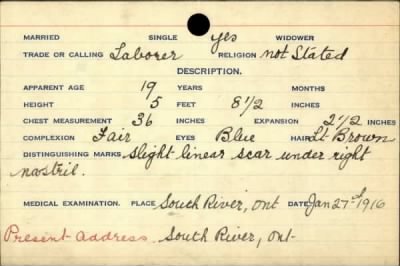 MARRIED SINGLE yes WIDOWER
TRADE OR CALLING Laborer RELIGION not Stated
DESCRIPTION.
APPARENT AGE 19 YEARS MONTHS
HEIGHT 5 FEET 8 1/2 INCHES
CHEST MEASUREMENT 36 INCHES EXPANSION 2 1/2 INCHES
COMPLEXION Fair EYES Blue HAIR Lt Brown
DISTINGUISHING MARKS slight linear scar under right
nostril.
MEDICAL EXAMINATION. PLACE South River, Ont DATE Jan 27st 1916
Present Address. South River, Ont-